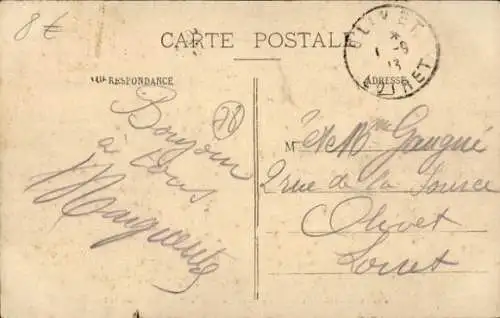 8 €
CARTE POSTALE
OLIVET
* 
1 -8
13
LOIRET
RESPONDANCE
ADRESSE
78
Bonjour
à tous
Marguerite
M r et Mme Gaugué
2 rue de la Source
Olivet
Loiret